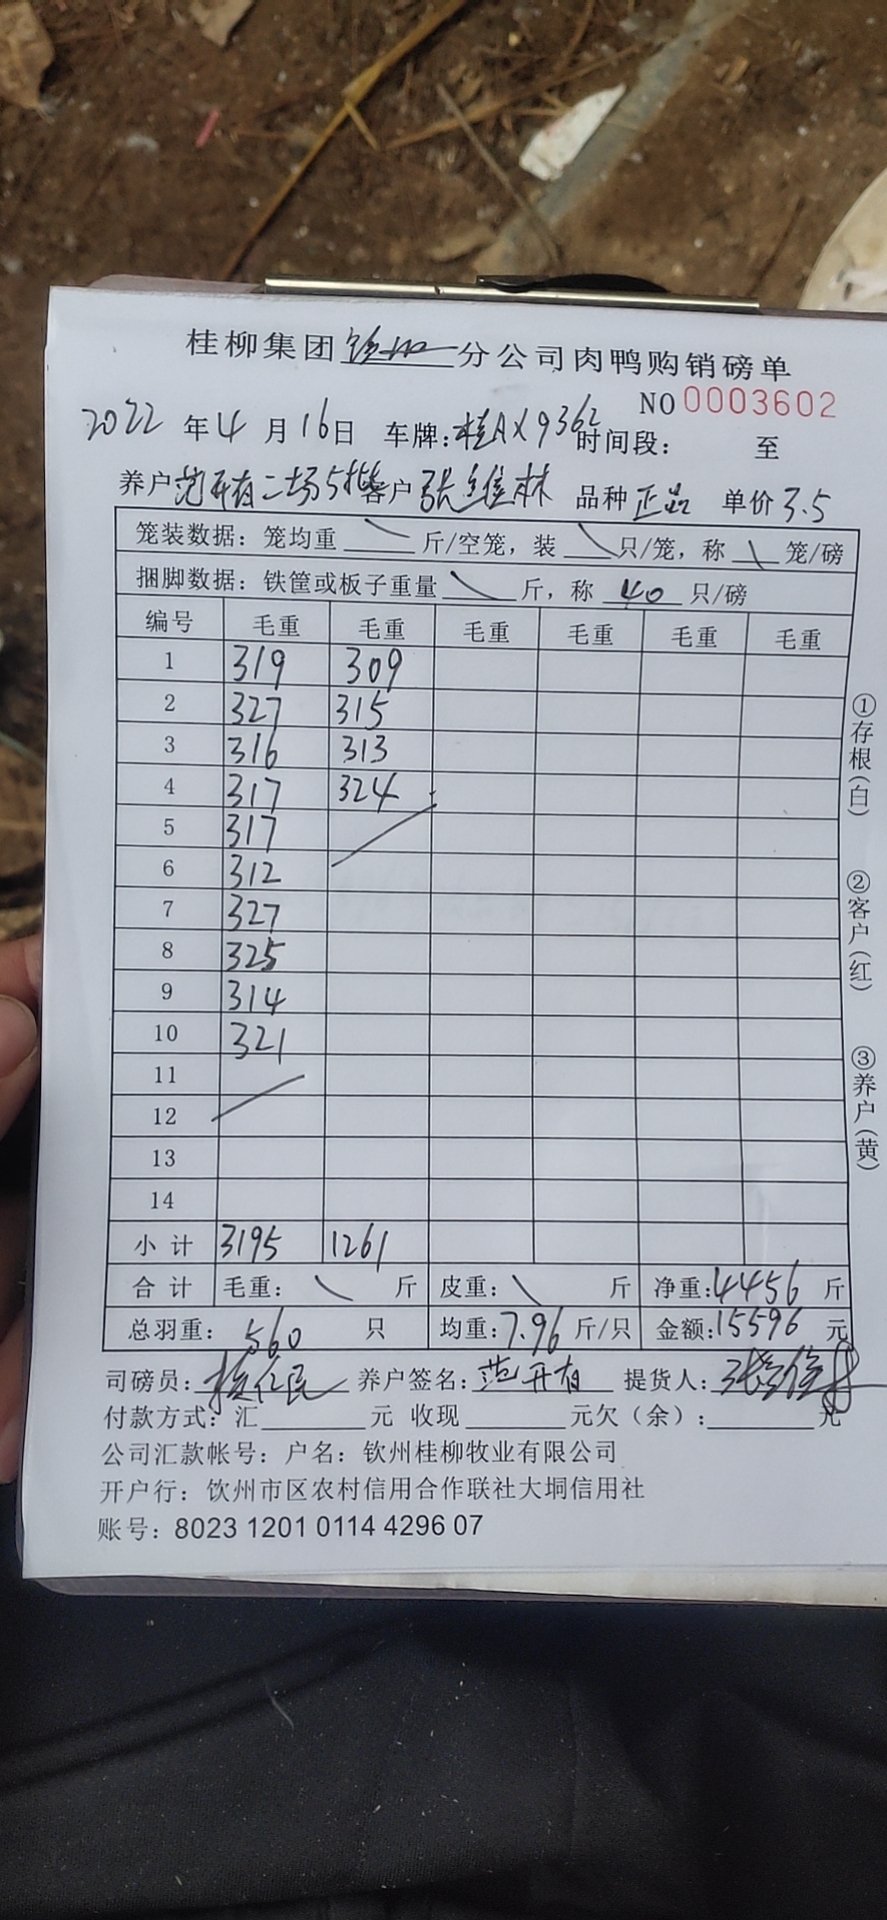 桂柳集团钦州分公司肉鸭购销磅单
NO 0003602
2022年4月16日 车牌:桂AX9362 时间段: 至
养户范开有二场5批 客户张 林 品种正品 单价3.5
笼装数据:笼均重 \ 斤/空笼,装 \ 只/笼,称 \ 笼/磅
捆脚数据:铁筐或板子重量 \ 斤,称 40 只/磅
编号 毛重 毛重 毛重 毛重 毛重 毛重
1 319 309
2 327 315
3 316 313
4 317 324
5 317
6 312
7 327
8 325
9 314
10 321
11
12
13
14
小计 3195 1261
合计 毛重: \ 斤 皮重: \ 斤 净重:4456 斤
总羽重: 560 只 均重:7.96 斤/只 金额:15596 元
司磅员: 养户签名:范开有 提货人:
付款方式:汇 元 收现 元欠(余): 元
公司汇款帐号:户名:钦州桂柳牧业有限公司
开户行:饮州市区农村信用合作联社大垌信用社
账号:8023 1201 0114 4296 07
①存根(白)
②客户(红)
③养户(黄)